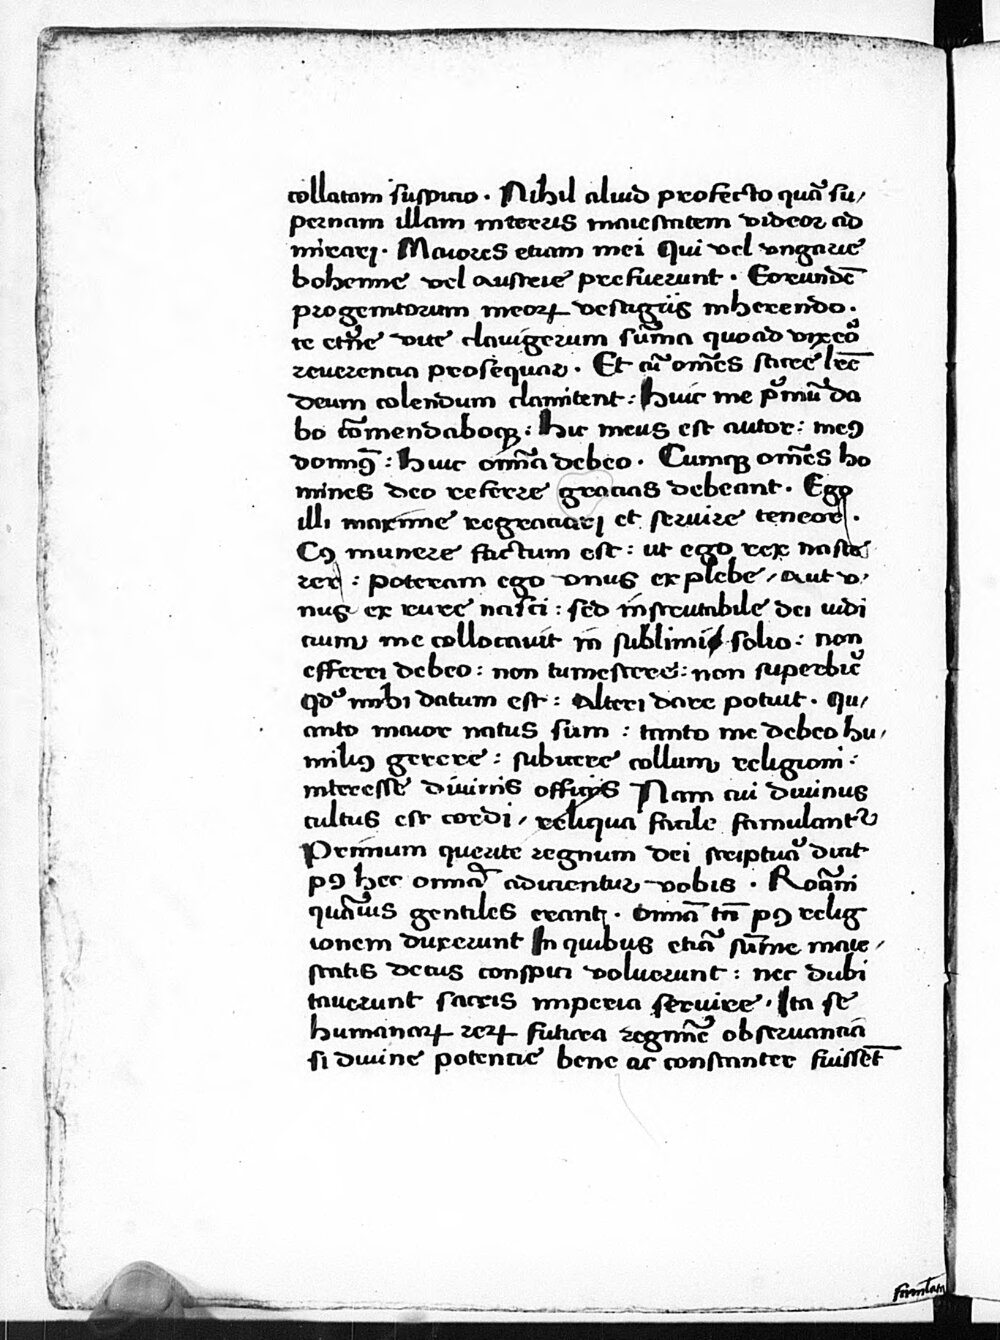 collatam suspicio . Nihil aliud profecto quā su/
pernam illam interris maiestatem videor ad
mirarj . Maiores etiam mei Qui vel vngarie
bohemie vel austrie prefuerunt . Eorundē
progenitorum meoꝝ vestigiis inherendo .
te etn̄e vite clauigerum sūma quoad vixeō
reuerencia prosequar . Et cū om̄es sacre lr̄e
deum colendum clamitent : Huic me pͥmū da
bo cōmendaboqꝫ : Hic meus est autor : meꝰ
domnꝰ : Huic om̄ia debeo . Cumqꝫ om̄es ho
mines deo referre gracias debeant . Ego
illi maxime regraciarj et seruire teneor .
Cꝰ munere factum est : ut ego rex nasce
rer : poteram ego vnus ex plebe / Aut v/
nus ex rure nasci : sed inscrutabile dei iudi
cium me collocauit in sublimi solio : non
efferri debeo : non tumescere : non superbire
qd̓ michi datum est : Alteri dare potuit . Qu/
anto maior natus sum : tanto me debeo hu/
miliꝰ gerere : subicere collum religioni :
interesse diuinis officijs Nam cui diuinus
cultus est cordi / reliqua facile famulantᷣ
Primum querite regnum dei scriptuā dicit
pꝰ hec om̄ia adicientur vobis . Roāni
quāuis gentiles erant . om̄ia tn̄ pꝰ relig
ionem duxerunt In quibus etiā sūme maie/
statis decus conspici voluerunt : nec dubi
tauerunt sacris imperia seruire . Ita se
humanaꝝ reꝝ futura regimē obseruancia
si diuine potencie bene ac constanter fuissēt